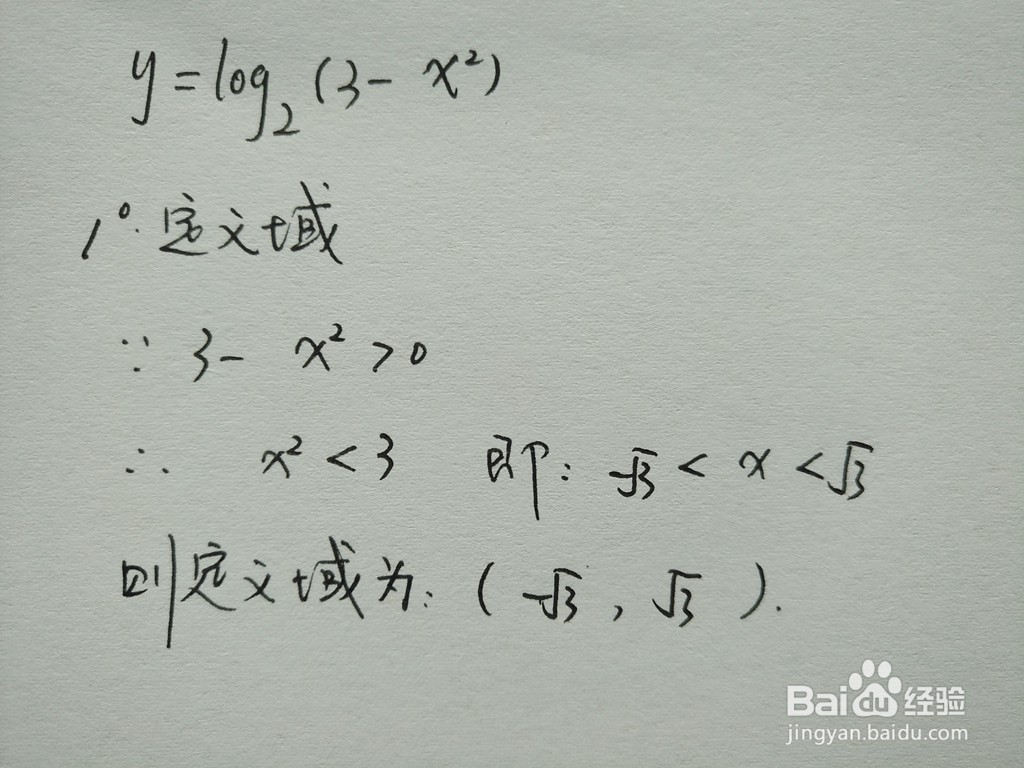 y = log₂(3 - x²)
1°. 定义域
∵ 3 - x² > 0
∴ x² < 3 即: -√3 < x < √3
则定义域为: (-√3, √3).
Baidu 经验
jingyan.baidu.com